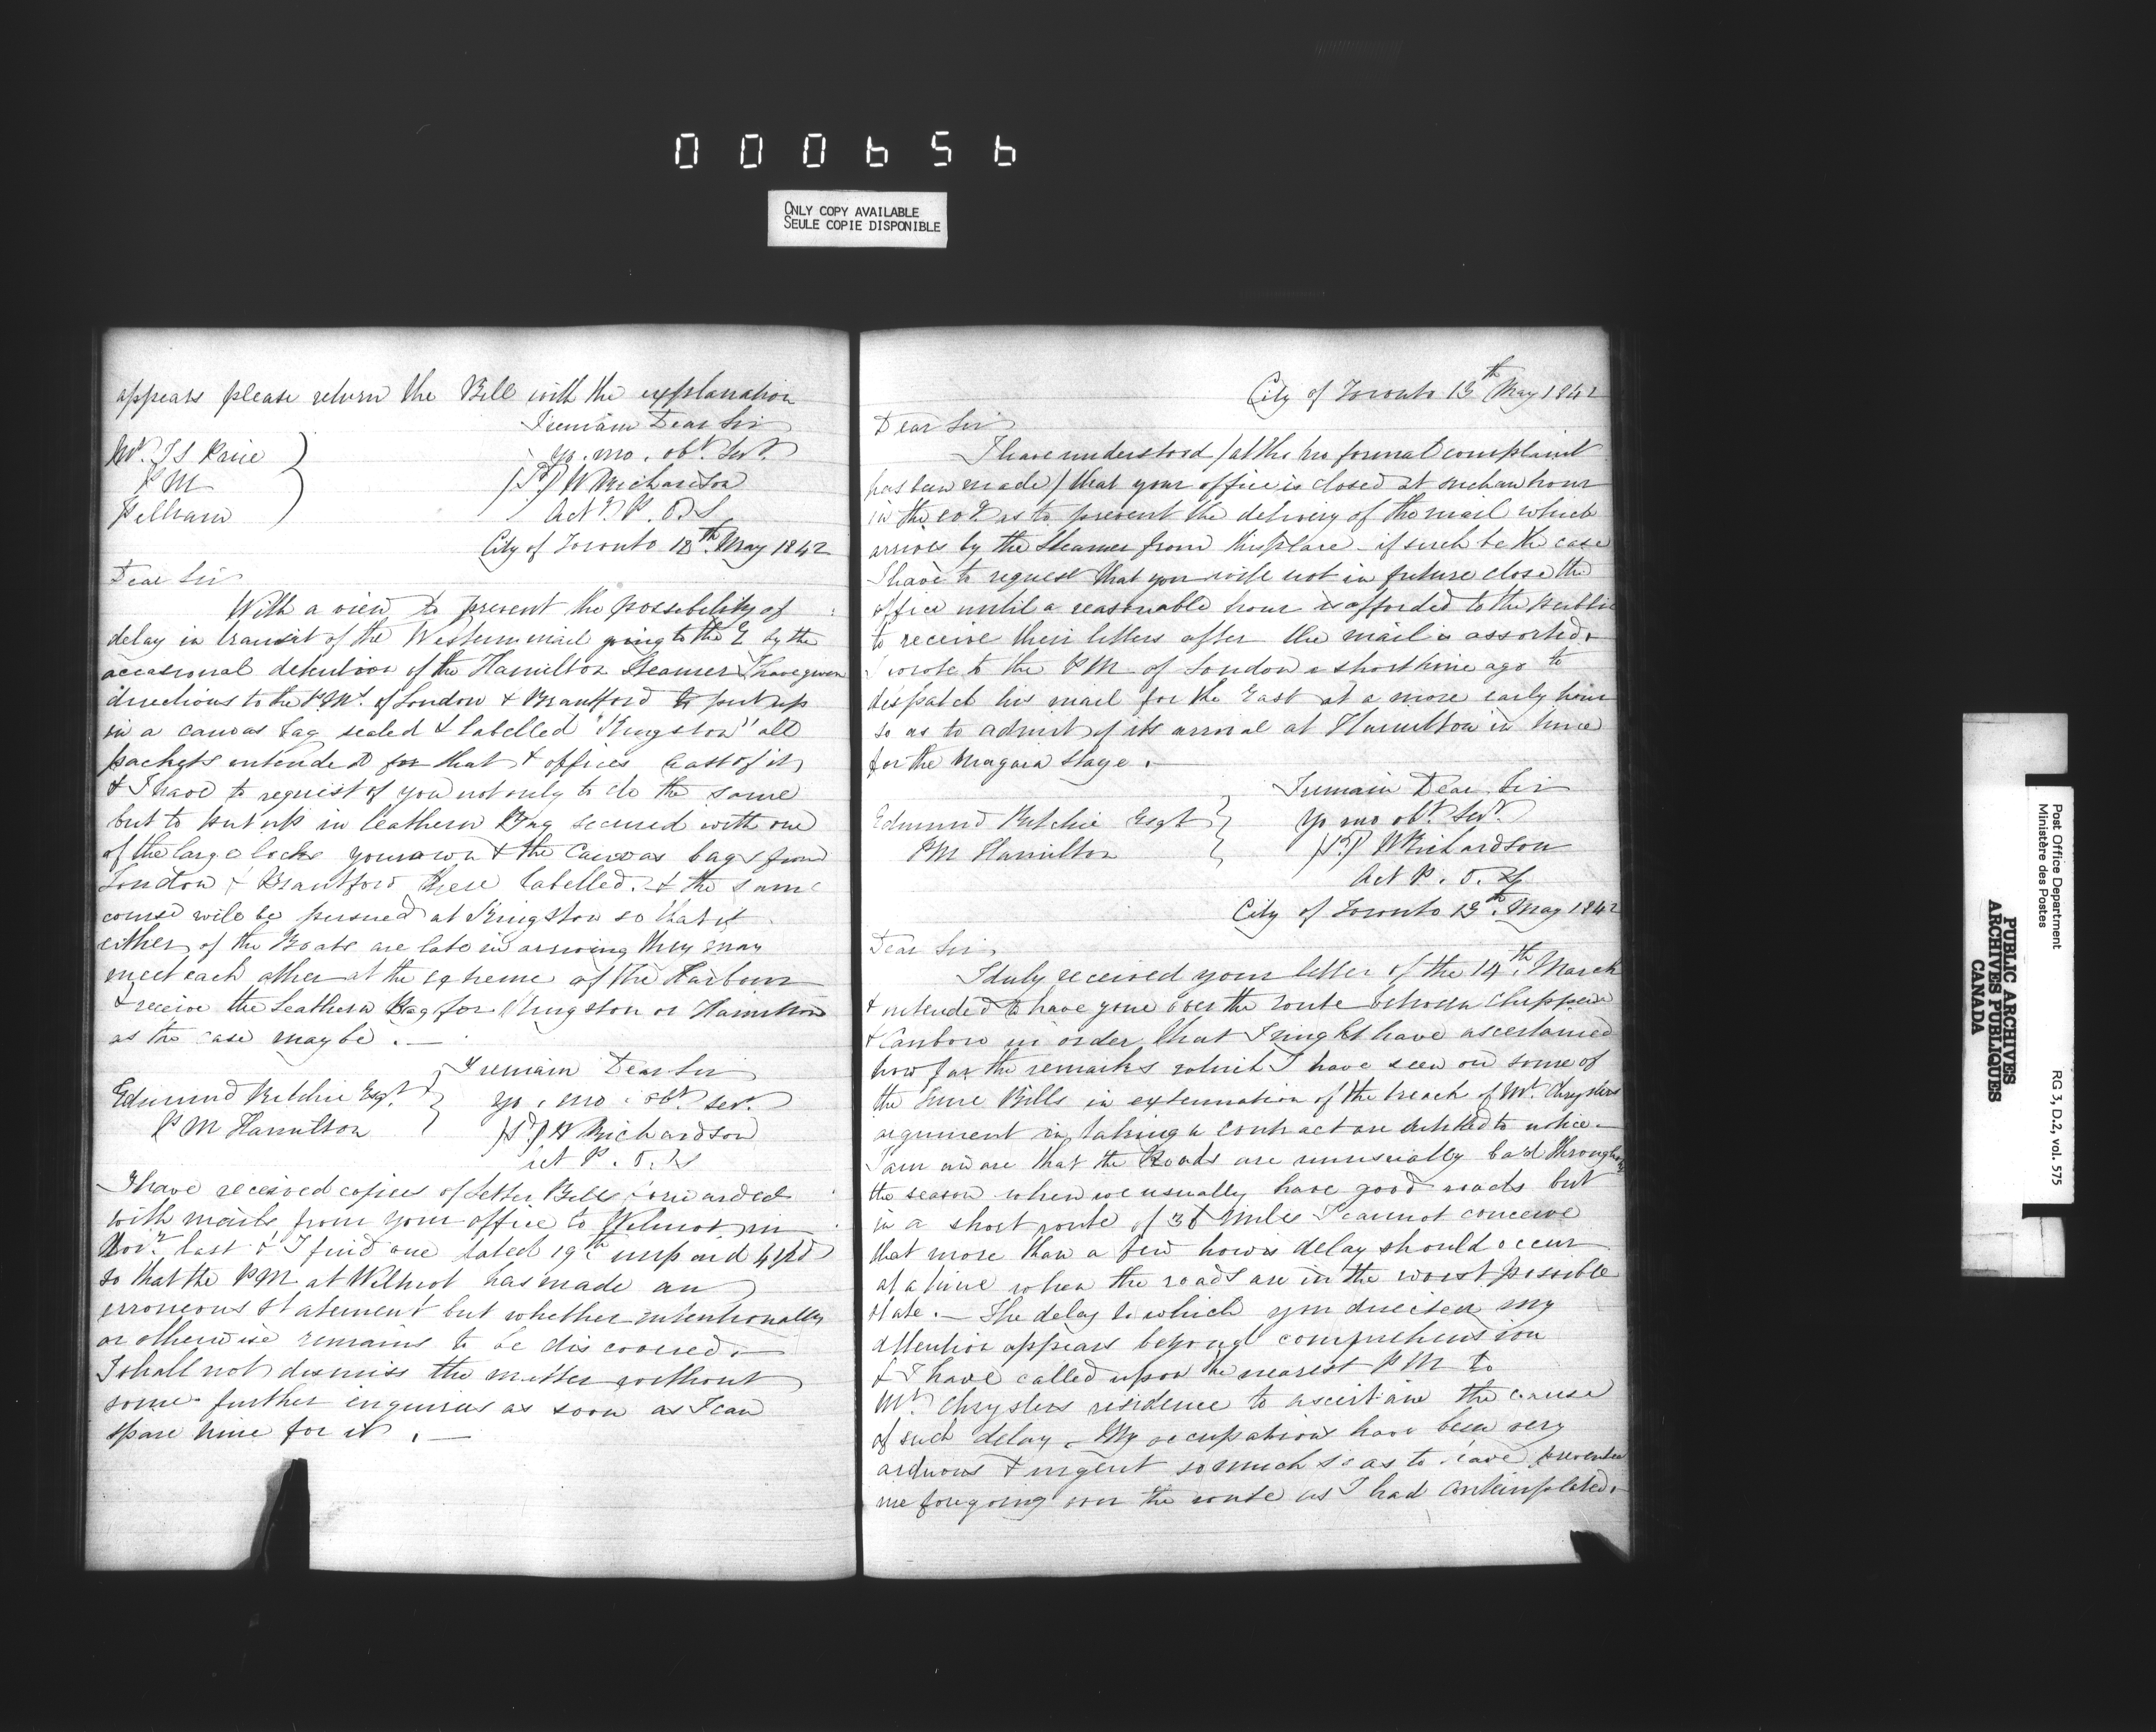 000656
ONLY COPY AVAILABLE
SEULE COPIE DISPONIBLE
appears please return the Bill with the explanation
I remain Dear Sir
Mr. J S Price
yr. mo. obt. Sert.
P M
W Richardson
Pelham
Act. P. O. S
City of Toronto 13th May 1842
Dear Sir
With a view to prevent the possibility of
delay in transit of the Western mail going to the E by the
occasional detention of the Hamilton Steamer I have given
directions to the P.Ms. of London & Brantford to put up
in a canvas bag sealed & labelled "Kingston" all
packets intended for that & offices East of it
& I have to request of you not only to do the same
but to put up in leathern Bag secured with one
of the large locks your own & the Canvas bags from
London & Brantford there labelled. & the same
course will be pursued at Kingston so that if
either of the Boats are late in arriving they may
meet each other at the extreme of the Harbour
& receive the Leathern Bag for Kingston or Hamilton
as the case may be . —
I remain Dear Sir
Edmund Ritchie Esqr.
yr. mo. obt. ser.
P M Hamilton
W Richardson
Act P. O. S
I have received copies of Letter Bills forwarded
with mails from your office to Wilmot in
Novr. last & I find one dated 19th unpaid 4½d
so that the PM at Wilmot has made an
erroneous statement but whether intentionally
or otherwise remains to be discovered —
I shall not dismiss the matter without
some further inquiries as soon as I can
spare time for it . —
City of Toronto 13th May 1842
Dear Sir
I have understood / altho no formal complaint
has been made / that your office is closed at such an hour
in the as to prevent the delivery of the mail which
arrives by the Steamer from this place – if such be the case
I have to request that you will not in future close the
office until a reasonable hour is afforded to the public
to receive their letters after the mail is assorted.
I wrote to the PM of London a short time ago to
despatch his mail for the East at a more early hour
so as to admit of its arrival at Hamilton in time
for the Niagara Stage . —
I remain Dear Sir
Edmund Ritchie Esqr
Yr mo obt. Sert.
PM Hamilton
W Richardson
Act P. O. S
City of Toronto 13th. May 1842
Dear Sir
I duly received your letter of the 14th. March
& intended to have gone over the route between Chippewa
& Canboro in order that I might have ascertained
how far the remarks which I have seen on some of
the Time Bills in extenuation of the breach of Mr. Chryslers
argument in taking a contract are entitled to notice —
I am aware that the Roads are unusually bad throughout
the season when we usually have good roads but
in a short route of 36 miles I cannot conceive
that more than a few hours delay should occur
at a time when the roads are in the worst possible
state. — The delay to which you directed my
attention appears beyond comprehension
& I have called upon the nearest P M to
Mr. Chryslers residence to ascertain the cause
of such delay. My occupations have been very
arduous & urgent so much so as to have prevented
me foregoing over the route as I had contemplated.
Post Office Department
Ministère des Postes
RG 3, D.2, vol. 575
PUBLIC ARCHIVES
ARCHIVES PUBLIQUES
CANADA